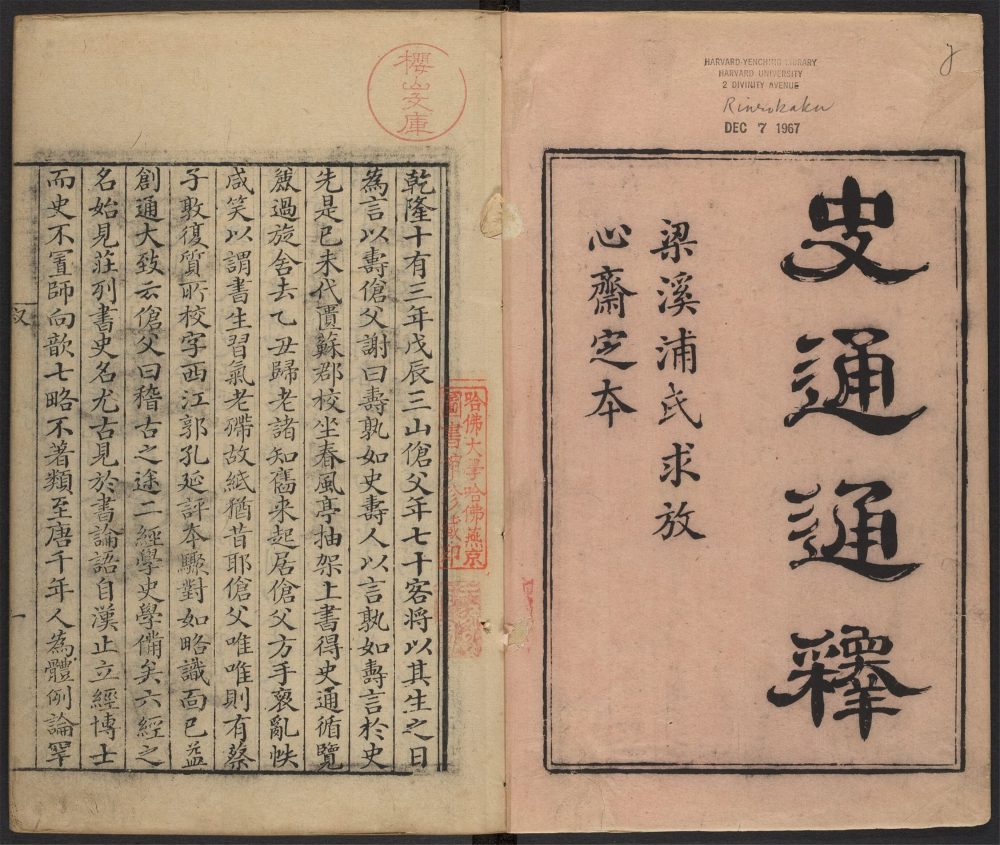 HARVARD-YENCHING LIBRARY
HARVARD UNIVERSITY
2 DIVINITY AVENUE
Rinrokaku
DEC 7 1967
史通通釋
梁溪浦氏求放
心齋定本
櫻山文庫
哈佛大學哈佛燕京
圖書館珍藏印
乾隆十有三年戊辰三山傖父年七十客將以其生之日
為言以壽傖父謝曰壽孰如史壽人以言孰如壽言於史
先是己未代匱蘇郡校坐春風亭抽架上書得史通循覽
粗過旋舍去乙丑歸老諸知舊來起居傖父方手亵亂帙
咸笑以謂書生習氣老殢故紙猶昔耶傖父唯唯則有蔡
子敦復質所校字西江郭孔延評本驟對如略識面已益
創通大致云傖父曰稽古之途二經學史學備矣六經之
名始見莊列書史名尤古見於書論語自漢止立經博士
而史不置師向歆七略不著類至唐千年人為體例論罕
叙
一